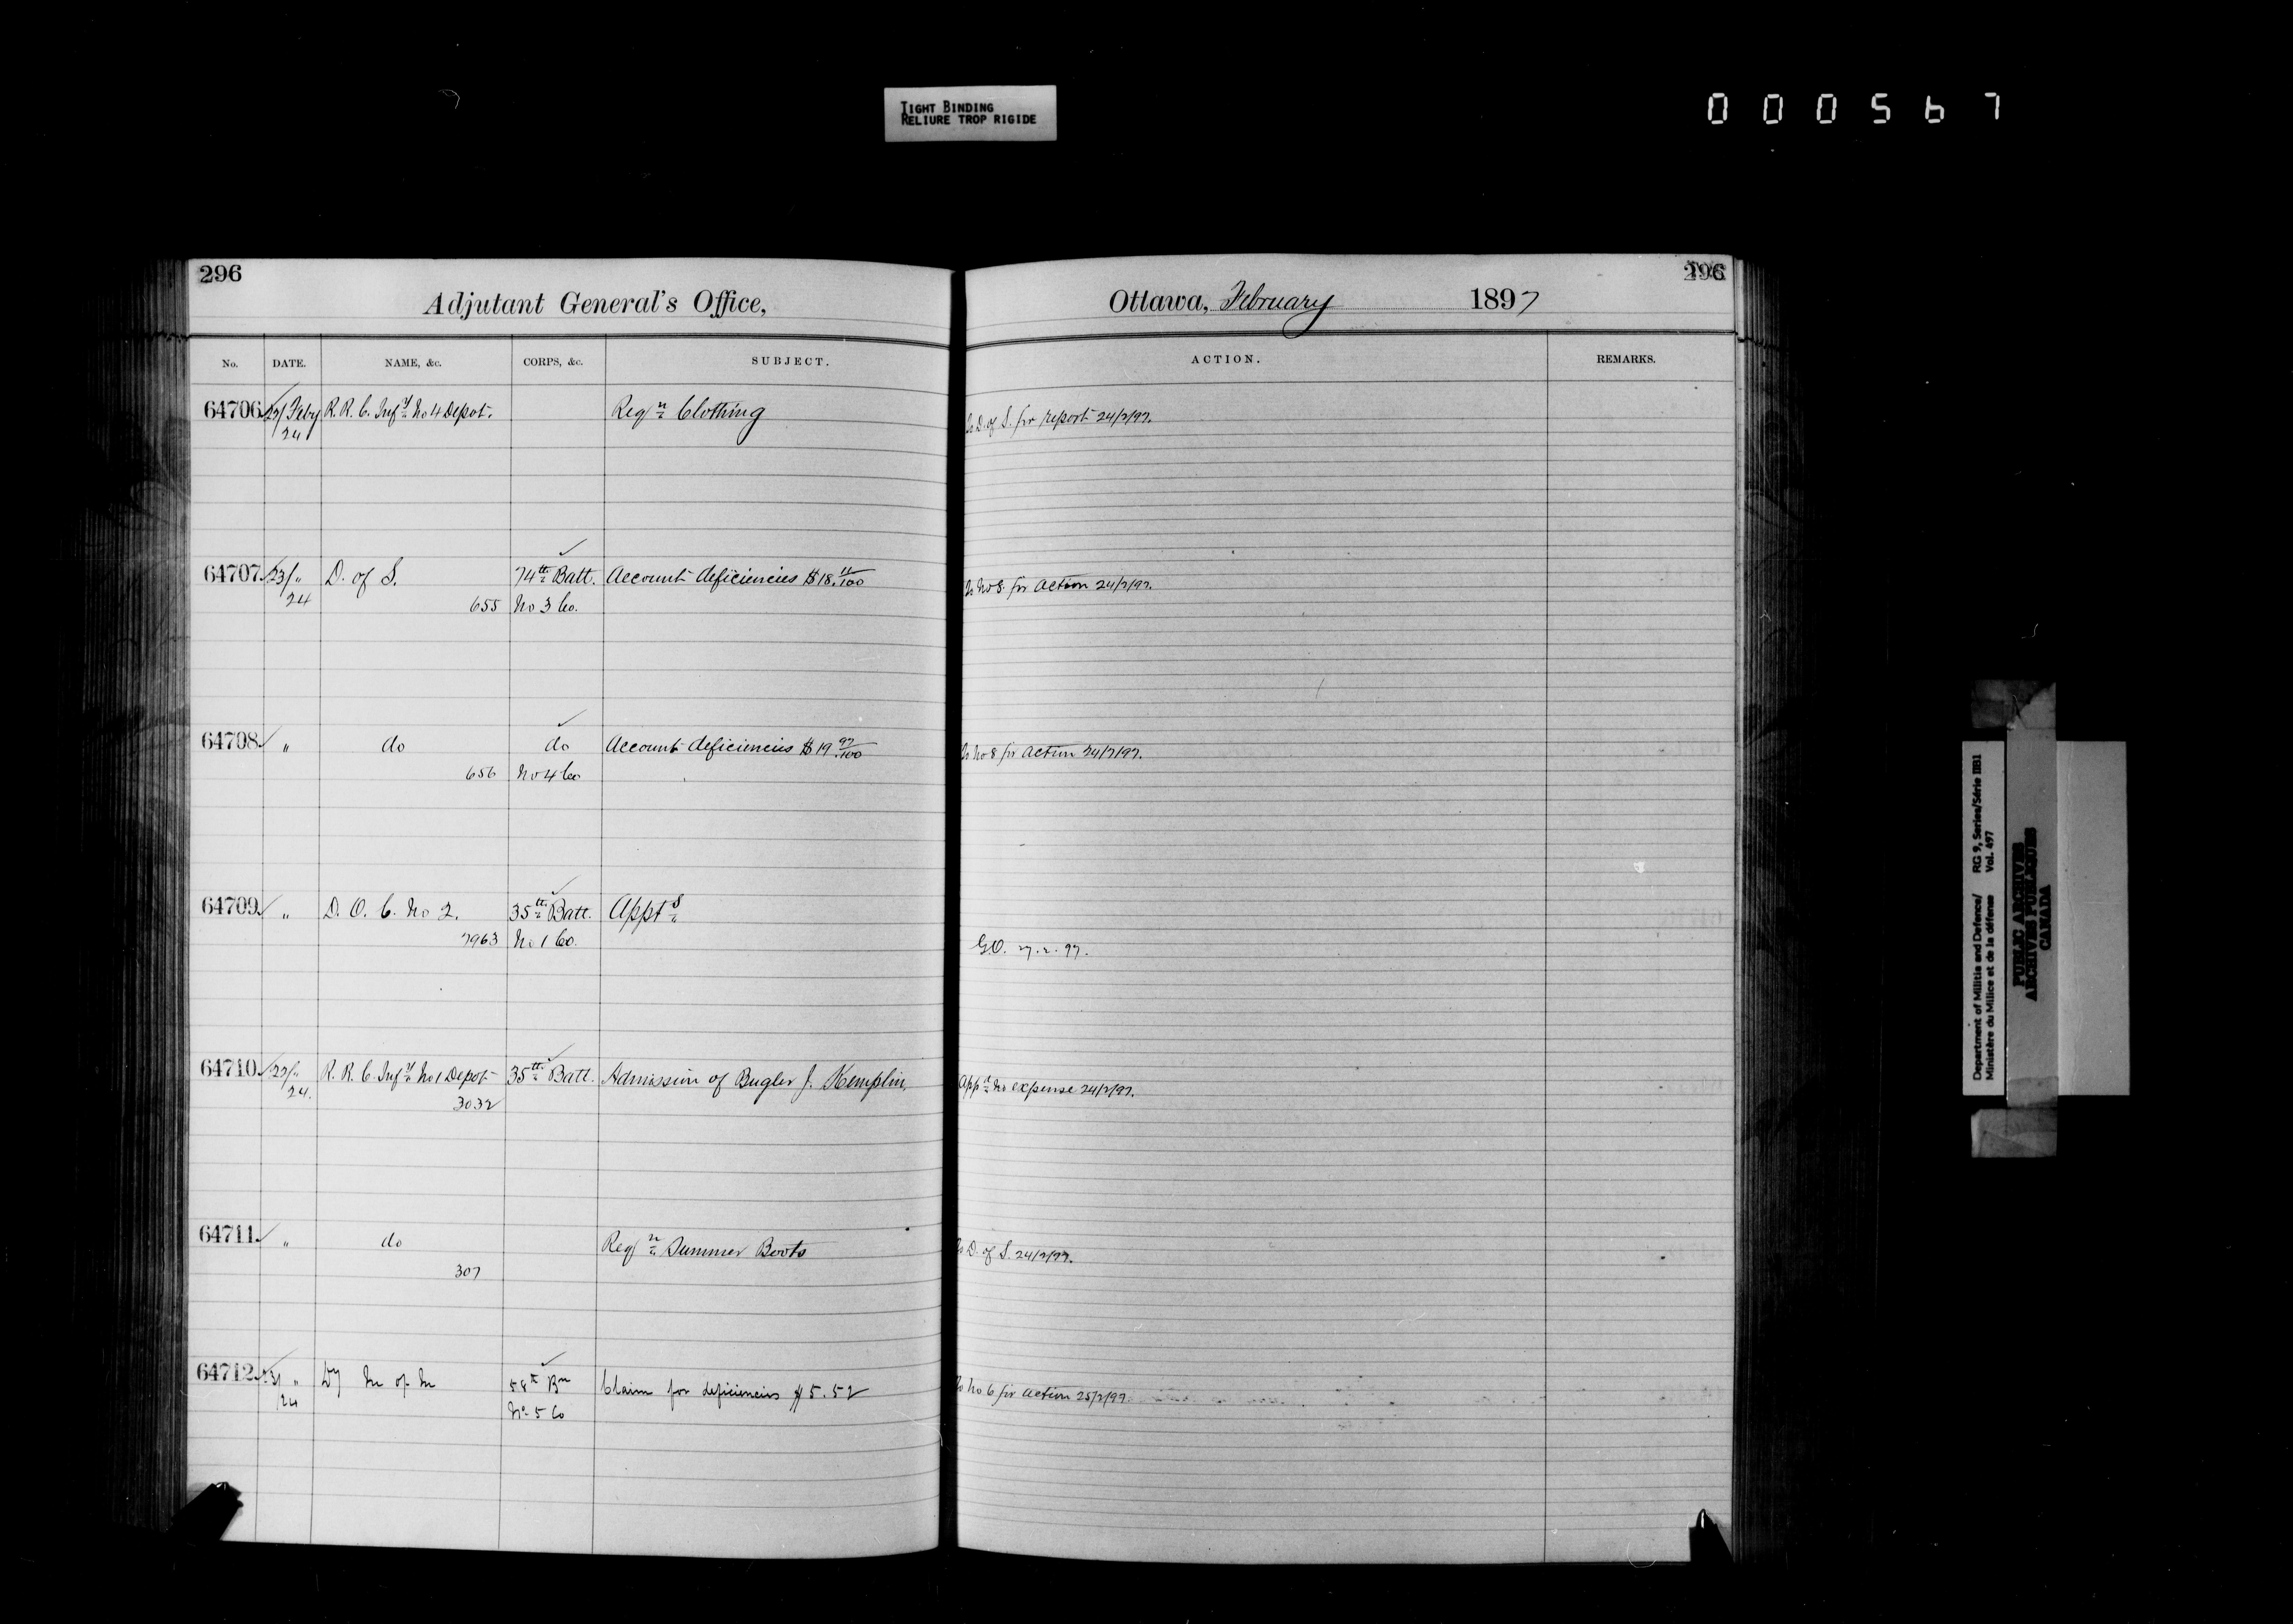 TIGHT BINDING
RELIURE TROP RIGIDE
000567
296
Adjutant General's Office,
No. DATE. NAME, &c. CORPS, &c. SUBJECT.
64706 Feby R. R. C. Infy No 4 Depot. Reqn Clothing
24
64707 23/ " D. of S. 74th Batt. Account deficiencies $18. 11/100
24 655 No 3 Co.
64708 " do do Account deficiencies $19 97/100
656 No 4 Co
64709 " D. O. C. No 2. 35th Batt. Appts
7963 No 1 Co.
64710 23/ " R. R. C. Infy No 1 Depot 35th Batt. Admission of Bugler J. Kemplin
24. 3032
64711 " do Reqn Summer Boots
307
64712 23/ " Dy M of M 58th Bn Claim for deficiencies $5.52
24 No 5 Co
296
Ottawa, February 1897
ACTION. REMARKS.
To D. of S. for report 24/2/97.
To No 8 for action 24/2/97.
To No 8 for action 24/2/97.
G.O. 27.2.97.
Appd No expense 24/2/97.
To D. of S. 24/2/97.
To No 6 for action 25/2/97.
Department of Militia and Defence/ RG 9, Series/Série IIB1
Ministère du Milice et de la défense Vol. 497
PUBLIC ARCHIVES
ARCHIVES PUBLIQUES
CANADA